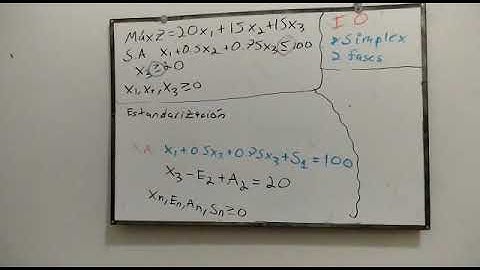 Máx Z = 20x₁ + 15x₂ + 15x₃
S.A x₁ + 0.5x₂ + 0.75x₃ ≤ 100
x₃ ≥ 20
x₁, x₂, x₃ ≥ 0
I O
Simplex
2 fases
Estandarización
S.A x₁ + 0.5x₂ + 0.75x₃ + S₁ = 100
x₃ - E₂ + A₂ = 20
Xn, En, An, Sn ≥ 0